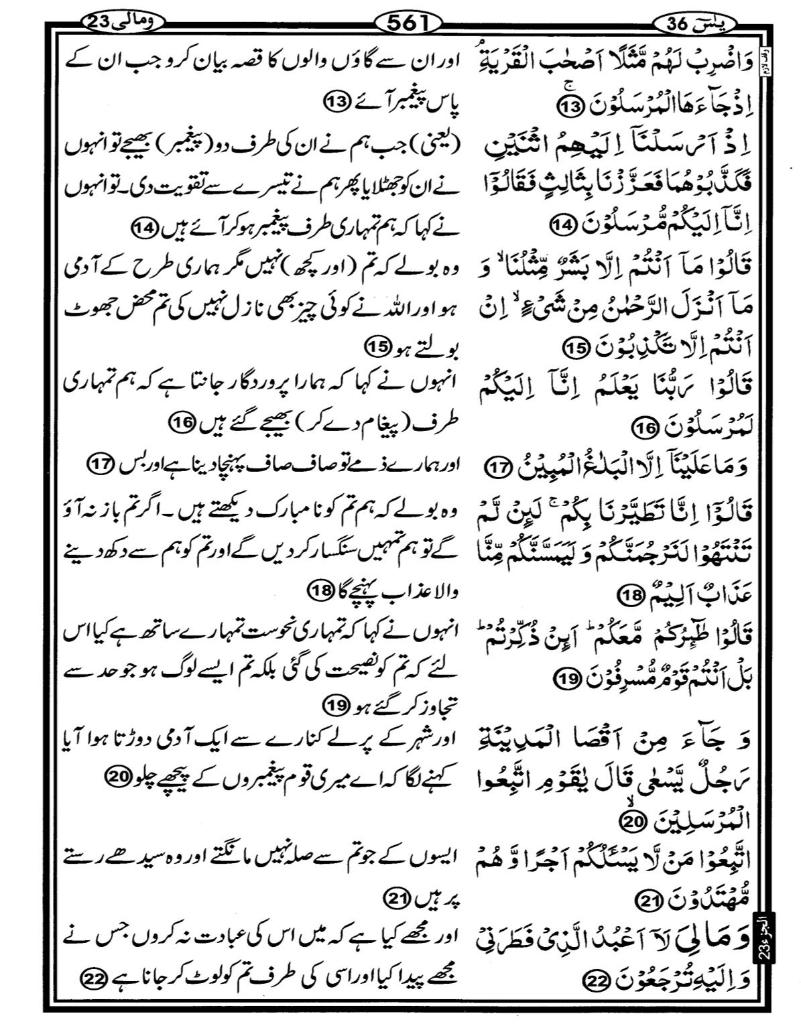 یٰسٓ 36
561
ومالی 23
وقف لازم
وَاضْرِبْ لَهُمْ مَّثَلًا اَصْحٰبَ الْقَرْیَةِ ۘ
اِذْ جَآءَهَا الْمُرْسَلُوْنَ ۚ 13
اِذْ اَرْسَلْنَاۤ اِلَیْهِمُ اثْنَیْنِ
فَكَذَّبُوْهُمَا فَعَزَّزْنَا بِثَالِثٍ فَقَالُوْۤا
اِنَّاۤ اِلَیْكُمْ مُّرْسَلُوْنَ 14
قَالُوْا مَاۤ اَنْتُمْ اِلَّا بَشَرٌ مِّثْلُنَا ۙ وَ
مَاۤ اَنْزَلَ الرَّحْمٰنُ مِنْ شَیْءٍ ۙ اِنْ
اَنْتُمْ اِلَّا تَكْذِبُوْنَ 15
قَالُوْا رَبُّنَا یَعْلَمُ اِنَّاۤ اِلَیْكُمْ
لَمُرْسَلُوْنَ 16
وَمَا عَلَیْنَاۤ اِلَّا الْبَلٰغُ الْمُبِیْنُ 17
قَالُوْۤا اِنَّا تَطَیَّرْنَا بِكُمْ ۚ لَىِٕنْ لَّمْ
تَنْتَهُوْا لَنَرْجُمَنَّكُمْ وَ لَیَمَسَّنَّكُمْ مِّنَّا
عَذَابٌ اَلِیْمٌ 18
قَالُوْا طَآىِٕرُكُمْ مَّعَكُمْ ؕ اَىِٕنْ ذُكِّرْتُمْ ؕ
بَلْ اَنْتُمْ قَوْمٌ مُّسْرِفُوْنَ 19
وَ جَآءَ مِنْ اَقْصَا الْمَدِیْنَةِ
رَجُلٌ یَّسْعٰى قَالَ یٰقَوْمِ اتَّبِعُوا
الْمُرْسَلِیْنَ ۙ 20
اتَّبِعُوْا مَنْ لَّا یَسْـَٔلُكُمْ اَجْرًا وَّ هُمْ
مُّهْتَدُوْنَ 21
وَ مَا لِیَ لَاۤ اَعْبُدُ الَّذِیْ فَطَرَنِیْ
وَ اِلَیْهِ تُرْجَعُوْنَ 22
الجزء 23
اور ان سے گاؤں والوں کا قصہ بیان کرو جب ان کے
پاس پیغمبر آئے 13
(یعنی) جب ہم نے ان کی طرف دو (پیغمبر) بھیجے تو انہوں
نے ان کو جھٹلایا پھر ہم نے تیسرے سے تقویت دی۔ تو انہوں
نے کہا کہ ہم تمہاری طرف پیغمبر ہو کر آئے ہیں 14
وہ بولے کہ تم (اور کچھ) نہیں مگر ہماری طرح کے آدمی
ہو اور اللہ نے کوئی چیز بھی نازل نہیں کی تم محض جھوٹ
بولتے ہو 15
انہوں نے کہا کہ ہمارا پروردگار جانتا ہے کہ ہم تمہاری
طرف (پیغام دے کر) بھیجے گئے ہیں 16
اور ہمارے ذمے تو صاف صاف پہنچا دینا ہے اور بس 17
وہ بولے کہ ہم تم کو نامبارک دیکھتے ہیں۔ اگر تم باز نہ آؤ
گے تو ہم تمہیں سنگسار کر دیں گے اور تم کو ہم سے دکھ دینے
والا عذاب پہنچے گا 18
انہوں نے کہا کہ تمہاری نحوست تمہارے ساتھ ہے کیا اس
لئے کہ تم کو نصیحت کی گئی بلکہ تم ایسے لوگ ہو جو حد سے
تجاوز کر گئے ہو 19
اور شہر کے پرلے کنارے سے ایک آدمی دوڑتا ہوا آیا
کہنے لگا کہ اے میری قوم پیغمبروں کے پیچھے چلو 20
ایسوں کے جو تم سے صلہ نہیں مانگتے اور وہ سیدھے رستے
پر ہیں 21
اور مجھے کیا ہے کہ میں اس کی عبادت نہ کروں جس نے
مجھے پیدا کیا اور اسی کی طرف تم کو لوٹ کر جانا ہے 22